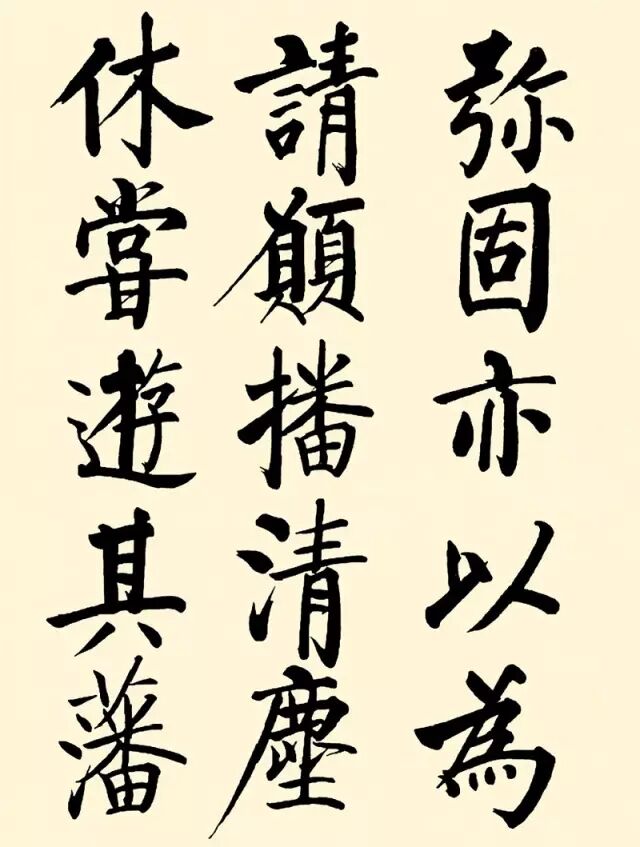 弥固亦以為
請願播清塵
休甞遊其藩